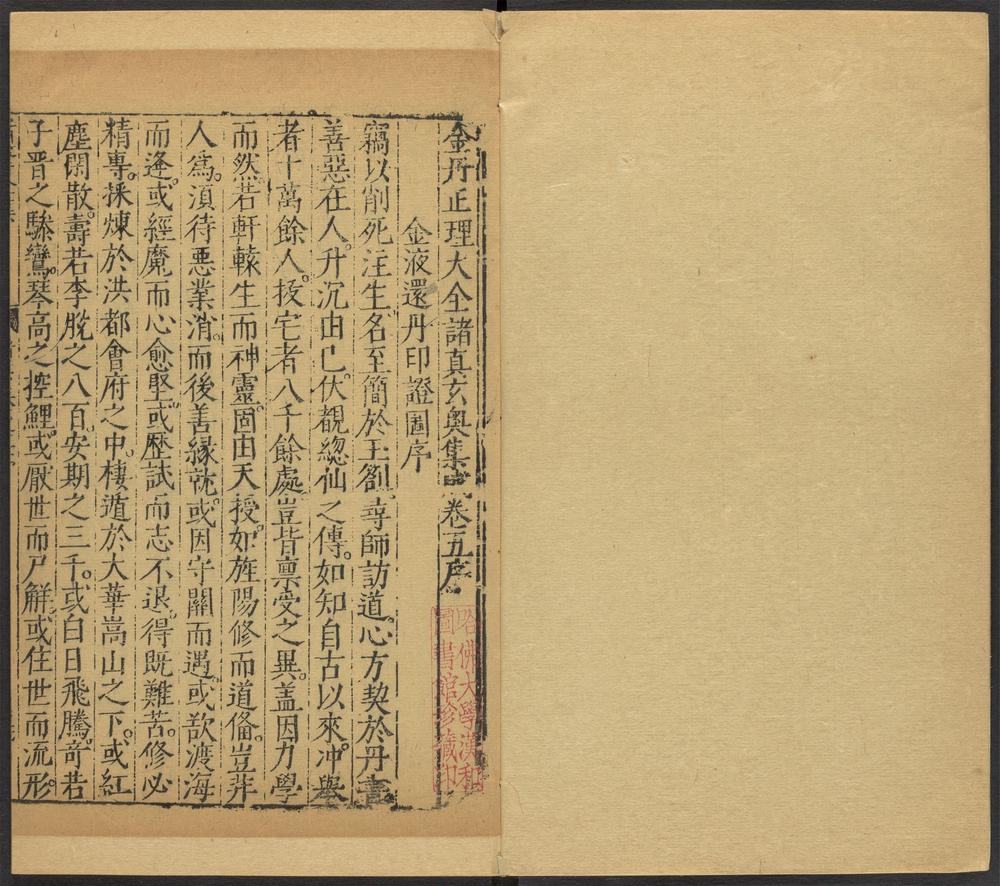 金丹正理大全諸真玄奧集成卷五序
金液還丹印證圖序
竊以削死注生名至簡於玉劄尋師訪道。心方契於丹書
善惡在人。升沉由己。伏覩緫仙之傳。如知自古以來。冲舉
者十萬餘人。拔宅者八千餘處。豈皆禀受之異。盖因力學
而然。若軒轅生而神靈。固由天授。如旌陽修而道俻。豈非
人爲。湏待惡業消。而後善緣就。或因守關而遇。或欲渡海
而逢。或經魔而心愈堅。或歷試而志不退。得既難苦。修必
精專。採煉於洪都會府之中。棲遁於大華嵩山之下。或紅
塵閑散。壽若李脫之八百。安期之三千。或白日飛騰。竒若
子晋之驂鸞。琴高之控鯉。或厭世而尸解。或住世而流形
哈佛大學漢和
圖書館珍藏印